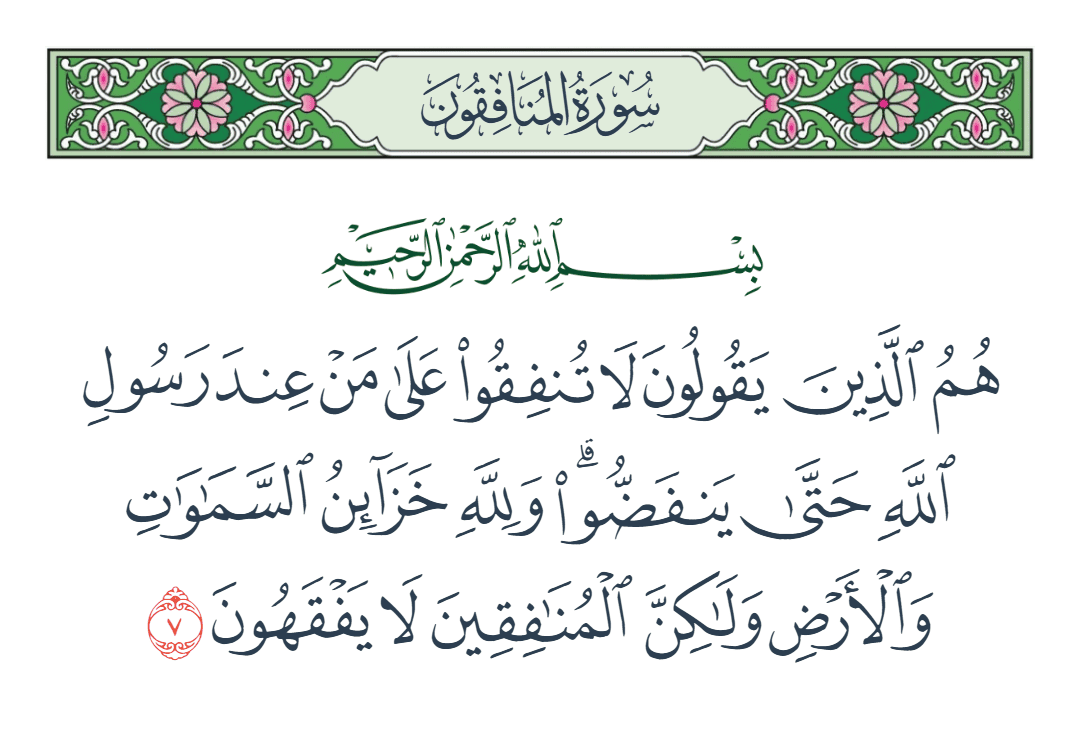 سُورَةُ المُنَافِقُونَ
بِسْمِ ٱللَّهِ ٱلرَّحْمَٰنِ ٱلرَّحِيمِ
هُمُ ٱلَّذِينَ يَقُولُونَ لَا تُنفِقُوا۟ عَلَىٰ مَنْ عِندَ رَسُولِ
ٱللَّهِ حَتَّىٰ يَنفَضُّوا۟ ۗ وَلِلَّهِ خَزَآئِنُ ٱلسَّمَٰوَٰتِ
وَٱلْأَرْضِ وَلَٰكِنَّ ٱلْمُنَٰفِقِينَ لَا يَفْقَهُونَ ٧